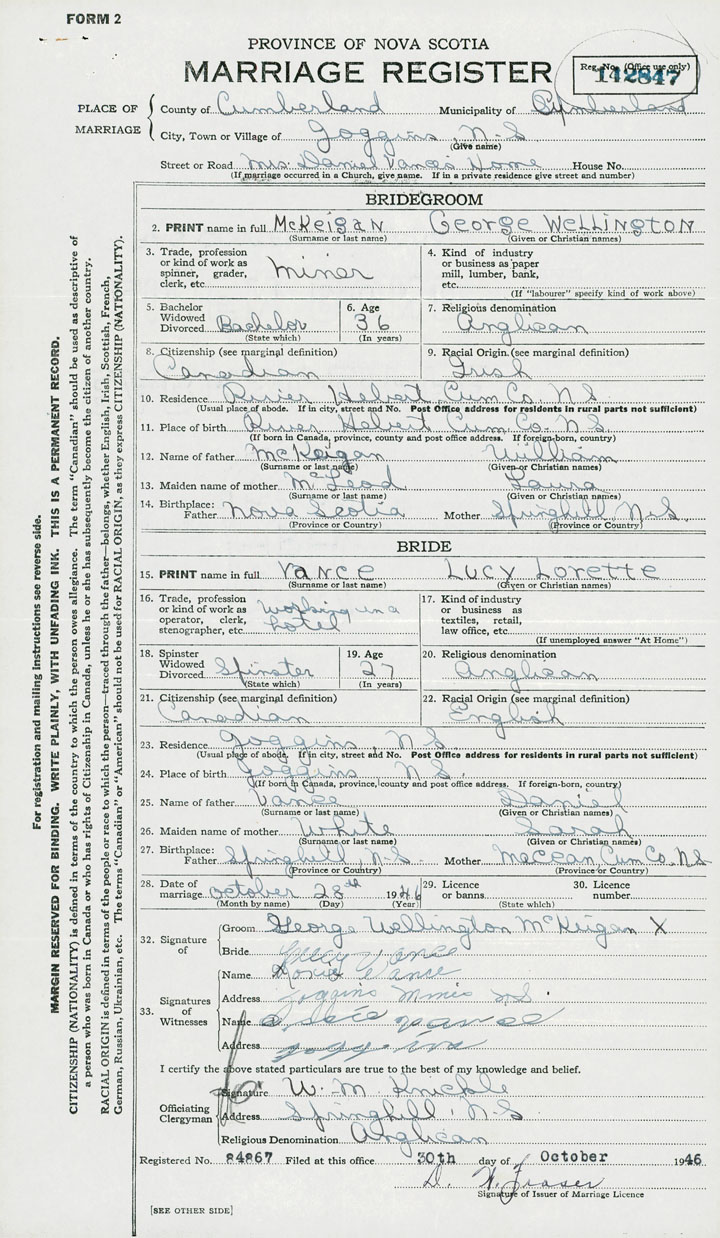 FORM 2
PROVINCE OF NOVA SCOTIA
MARRIAGE REGISTER
Reg. No. (Office use only)
142847
PLACE OF MARRIAGE
County of Cumberland Municipality of Cumberland
City, Town or Village of Joggins, N.S
(Give name)
Street or Road Mrs. Daniel Vance's Home House No.
(If marriage occurred in a Church, give name. If in a private residence give street and number)
BRIDEGROOM
2. PRINT name in full McKeigan George Wellington
(Surname or last name) (Given or Christian names)
3. Trade, profession or kind of work as spinner, grader, clerk, etc. miner
4. Kind of industry or business as paper mill, lumber, bank, etc.
(If "labourer" specify kind of work above)
5. Bachelor Widowed Divorced Bachelor
(State which)
6. Age 36
(In years)
7. Religious denomination
Anglican
8. Citizenship (see marginal definition)
Canadian
9. Racial Origin (see marginal definition)
Irish
10. Residence River Hebert Cum Co. N S
(Usual place of abode. If in city, street and No. Post Office address for residents in rural parts not sufficient)
11. Place of birth River Hebert Cum Co. N S
(If born in Canada, province, county and post office address. If foreign-born, country)
12. Name of father McKeigan William
(Surname or last name) (Given or Christian names)
13. Maiden name of mother McLeod Laura
(Surname or last name) (Given or Christian names)
14. Birthplace: Father Nova Scotia Mother Springhill N.S.
(Province or Country) (Province or Country)
BRIDE
15. PRINT name in full Vance Lucy Lorette
(Surname or last name) (Given or Christian names)
16. Trade, profession or kind of work as operator, clerk, stenographer, etc. working in a hotel
17. Kind of industry or business as textiles, retail, law office, etc.
(If unemployed answer "At Home")
18. Spinster Widowed Divorced Spinster
(State which)
19. Age 27
(In years)
20. Religious denomination
Anglican
21. Citizenship (see marginal definition)
Canadian
22. Racial Origin (see marginal definition)
English
23. Residence Joggins, N S
(Usual place of abode. If in city, street and No. Post Office address for residents in rural parts not sufficient)
24. Place of birth Joggins N S.
(If born in Canada, province, county and post office address. If foreign-born, country)
25. Name of father Vance Daniel
(Surname or last name) (Given or Christian names)
26. Maiden name of mother White Sarah
(Surname or last name) (Given or Christian names)
27. Birthplace: Father Springhill, N.S. Mother Maccan, Cum Co. N S
(Province or Country) (Province or Country)
28. Date of marriage October 28th 1946
(Month by name) (Day) (Year)
29. Licence or banns
(State which)
30. Licence number
32. Signature of
Groom George Wellington McKeigan X
Bride Lucy Vance
33. Signatures of Witnesses
Name Vance
Address Joggins Mines N S.
Name Vance
Address Joggins
I certify the above stated particulars are true to the best of my knowledge and belief.
Officiating Clergyman
Signature W. M Knickle
Address Springhill, N-S
Religious Denomination Anglican
Registered No. 84867 Filed at this office 30th day of October 1946
D. W. Fraser
Signature of Issuer of Marriage Licence
[SEE OTHER SIDE]
For registration and mailing instructions see reverse side.
MARGIN RESERVED FOR BINDING. WRITE PLAINLY, WITH UNFADING INK. THIS IS A PERMANENT RECORD.
CITIZENSHIP (NATIONALITY) is defined in terms of the country to which the person owes allegiance. The term "Canadian" should be used as descriptive of
a person who was born in Canada or who has rights of Citizenship in Canada, unless he or she has subsequently become the citizen of another country.
RACIAL ORIGIN is defined in terms of the people or race to which the person—traced through the father—belongs, whether English, Irish, Scottish, French,
German, Russian, Ukrainian, etc. The terms "Canadian" or "American" should not be used for RACIAL ORIGIN, as they express CITIZENSHIP (NATIONALITY).